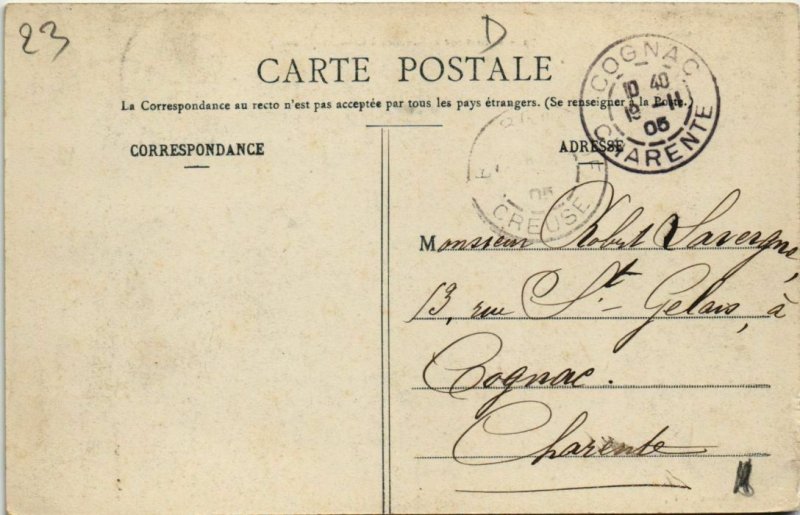 23
D
CARTE POSTALE
La Correspondance au recto n'est pas acceptée par tous les pays étrangers. (Se renseigner à la Poste.)
CORRESPONDANCE
ADRESSE
COGNAC
10 40
12 -11
05
CHARENTE
05
CREUSE
Monsieur Robert Lavergne,
13, rue St- Gelais, à
Cognac.
Charente